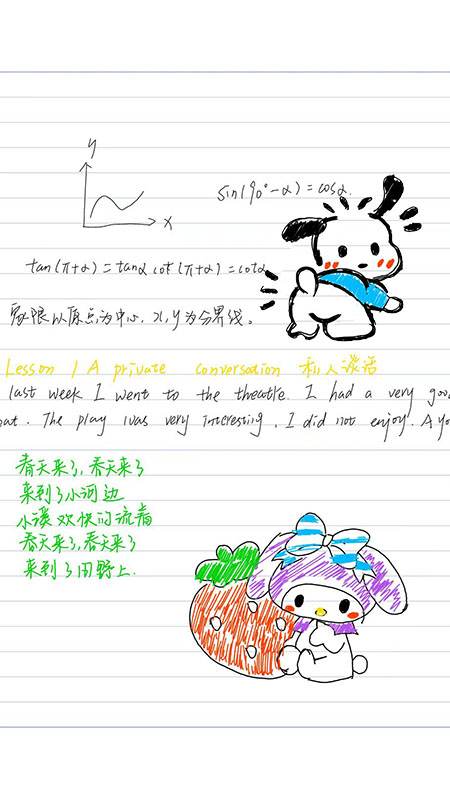 y
sin(90°-α)=cosα.
x
tan(π+α)=tanα cot(π+α)=cotα
象限以原点为中心,x,y为分界线。
Lesson 1 A private conversation 私人谈话
last week I went to the theatre. I had a very goo
at. The play was very interesting, I did not enjoy. A yo
春天来了,春天来了
来到了小河边
小溪欢快的流着
春天来了,春天来了
来到了田野上.